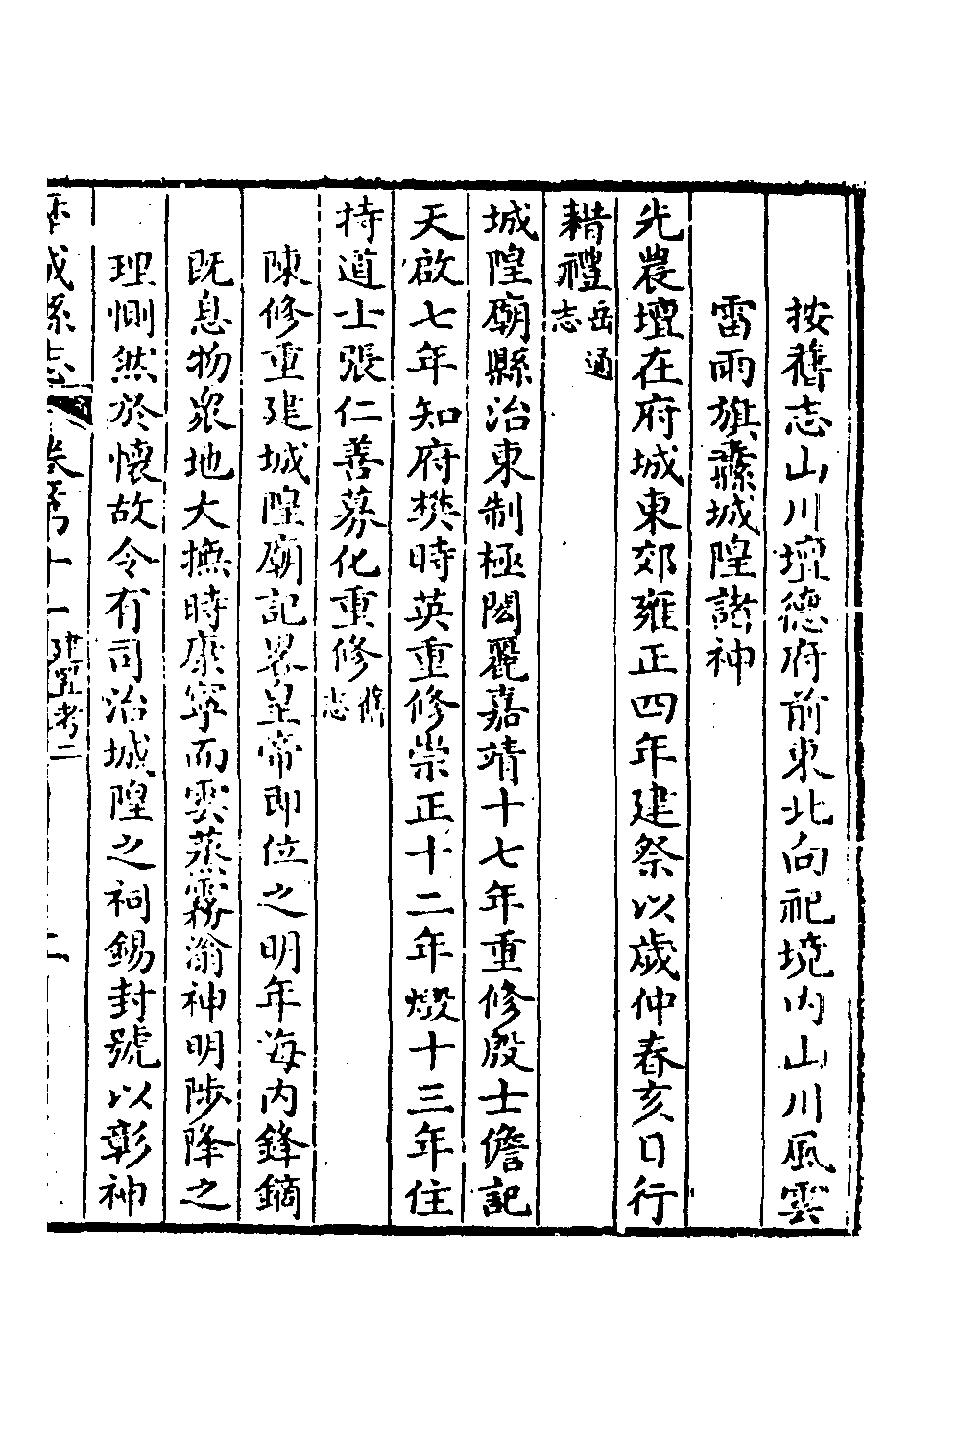 按舊志山川壇德府前東北向祀境内山川風雲
雷雨旗纛城隍諸神
先農壇在府城東郊雍正四年建祭以歲仲春亥日行
耤禮岳通志
城隍廟縣治東制極閎麗嘉靖十七年重修殷士儋記
天啟七年知府樊時英重修崇正十二年燬十三年住
持道士張仁善募化重修舊志
陳修重建城隍廟記畧皇帝即位之明年海内鋒鏑
既息物衆地大撫時康寧而雲蒸霧滃神明陟降之
理惻然於懷故令有司治城隍之祠錫封號以彰神
歷城縣志 卷第十一 建置考二 二